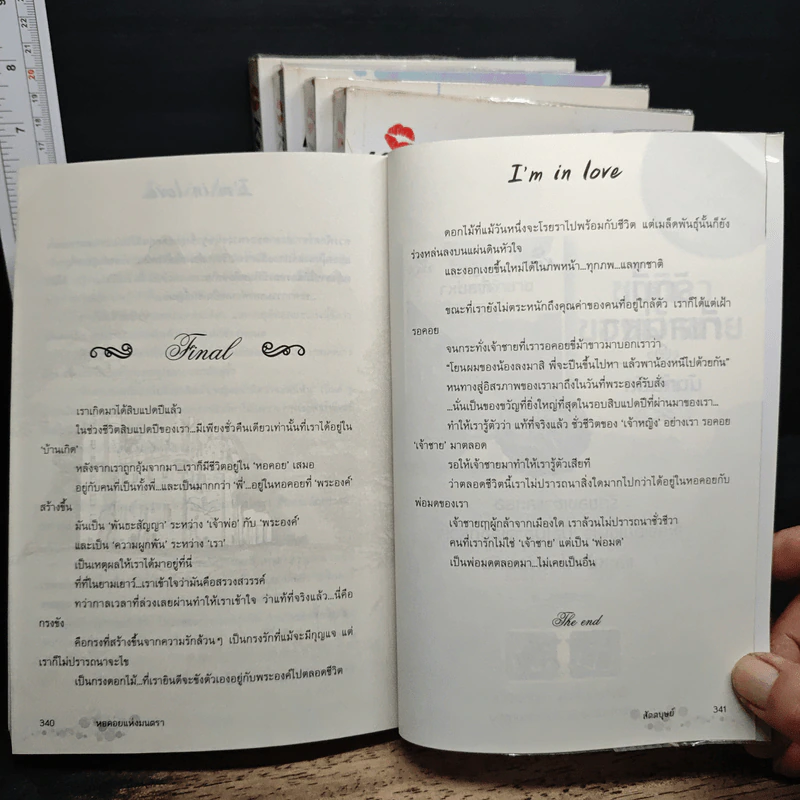 Final
เราเกิดมาได้สิบแปดปีแล้ว
ในช่วงชีวิตสิบแปดปีของเรา...มีเพียงชั่วคืนเดียวเท่านั้นที่เราได้อยู่ใน
‘บ้านเกิด’
หลังจากเราถูกอุ้มจากมา...เราก็มีชีวิตอยู่ใน ‘หอคอย’ เสมอ
อยู่กับคนที่เป็นทั้งพี่...และเป็นมากกว่า ‘พี่’...อยู่ในหอคอยที่ ‘พระองค์’
สร้างขึ้น
มันเป็น ‘พันธะสัญญา’ ระหว่าง ‘เจ้าพ่อ’ กับ ‘พระองค์’
และเป็น ‘ความผูกพัน’ ระหว่าง ‘เรา’
เป็นเหตุผลให้เราได้มาอยู่ที่นี่
ที่ที่ในยามเยาว์...เราเข้าใจว่ามันคือสรวงสวรรค์
ทว่ากาลเวลาที่ล่วงเลยผ่านทำให้เราเข้าใจ ว่าแท้ที่จริงแล้ว...นี่คือ
กรงขัง
คือกรงที่สร้างขึ้นจากความรักล้วนๆ เป็นกรงรักที่แม้จะมีกุญแจ แต่
เราก็ไม่ปรารถนาจะไข
เป็นกรงดอกไม้...ที่เรายินดีจะขังตัวเองอยู่กับพระองค์ไปตลอดชีวิต
340 หอคอยแห่งมนตรา
I'm in love
ดอกไม้ที่แม้วันหนึ่งจะโรยราไปพร้อมกับชีวิต แต่เมล็ดพันธุ์นั้นก็ยัง
ร่วงหล่นลงบนแผ่นดินหัวใจ
และงอกเงยขึ้นใหม่ได้ในภพหน้า...ทุกภพ...แลทุกชาติ
ขณะที่เรายังไม่ตระหนักถึงคุณค่าของคนที่อยู่ใกล้ตัว เราก็ได้แต่เฝ้า
รอคอย
จนกระทั่งเจ้าชายที่เรารอคอยขี่ม้าขาวมาบอกเราว่า
“โยนผมของน้องลงมาสิ พี่จะปีนขึ้นไปหา แล้วพาน้องหนีไปด้วยกัน”
หนทางสู่อิสรภาพของเรามาถึงในวันที่พระองค์รับสั่ง
...นั่นเป็นของขวัญที่ยิ่งใหญ่ที่สุดในรอบสิบแปดปีที่ผ่านมาของเรา...
ทำให้เรารู้ตัวว่า แท้ที่จริงแล้ว ชั่วชีวิตของ ‘เจ้าหญิง’ อย่างเรา รอคอย
‘เจ้าชาย’ มาตลอด
รอให้เจ้าชายมาทำให้เรารู้ตัวเสียที
ว่าตลอดชีวิตนี้เราไม่ปรารถนาสิ่งใดมากไปกว่าได้อยู่ในหอคอยกับ
พ่อมดของเรา
เจ้าชายฤๅผู้กล้าจากเมืองใด เราล้วนไม่ปรารถนาชั่วชีวา
คนที่เรารักไม่ใช่ ‘เจ้าชาย’ แต่เป็น ‘พ่อมด’
เป็นพ่อมดตลอดมา...ไม่เคยเป็นอื่น
The end
สัตตบุษย์ 341